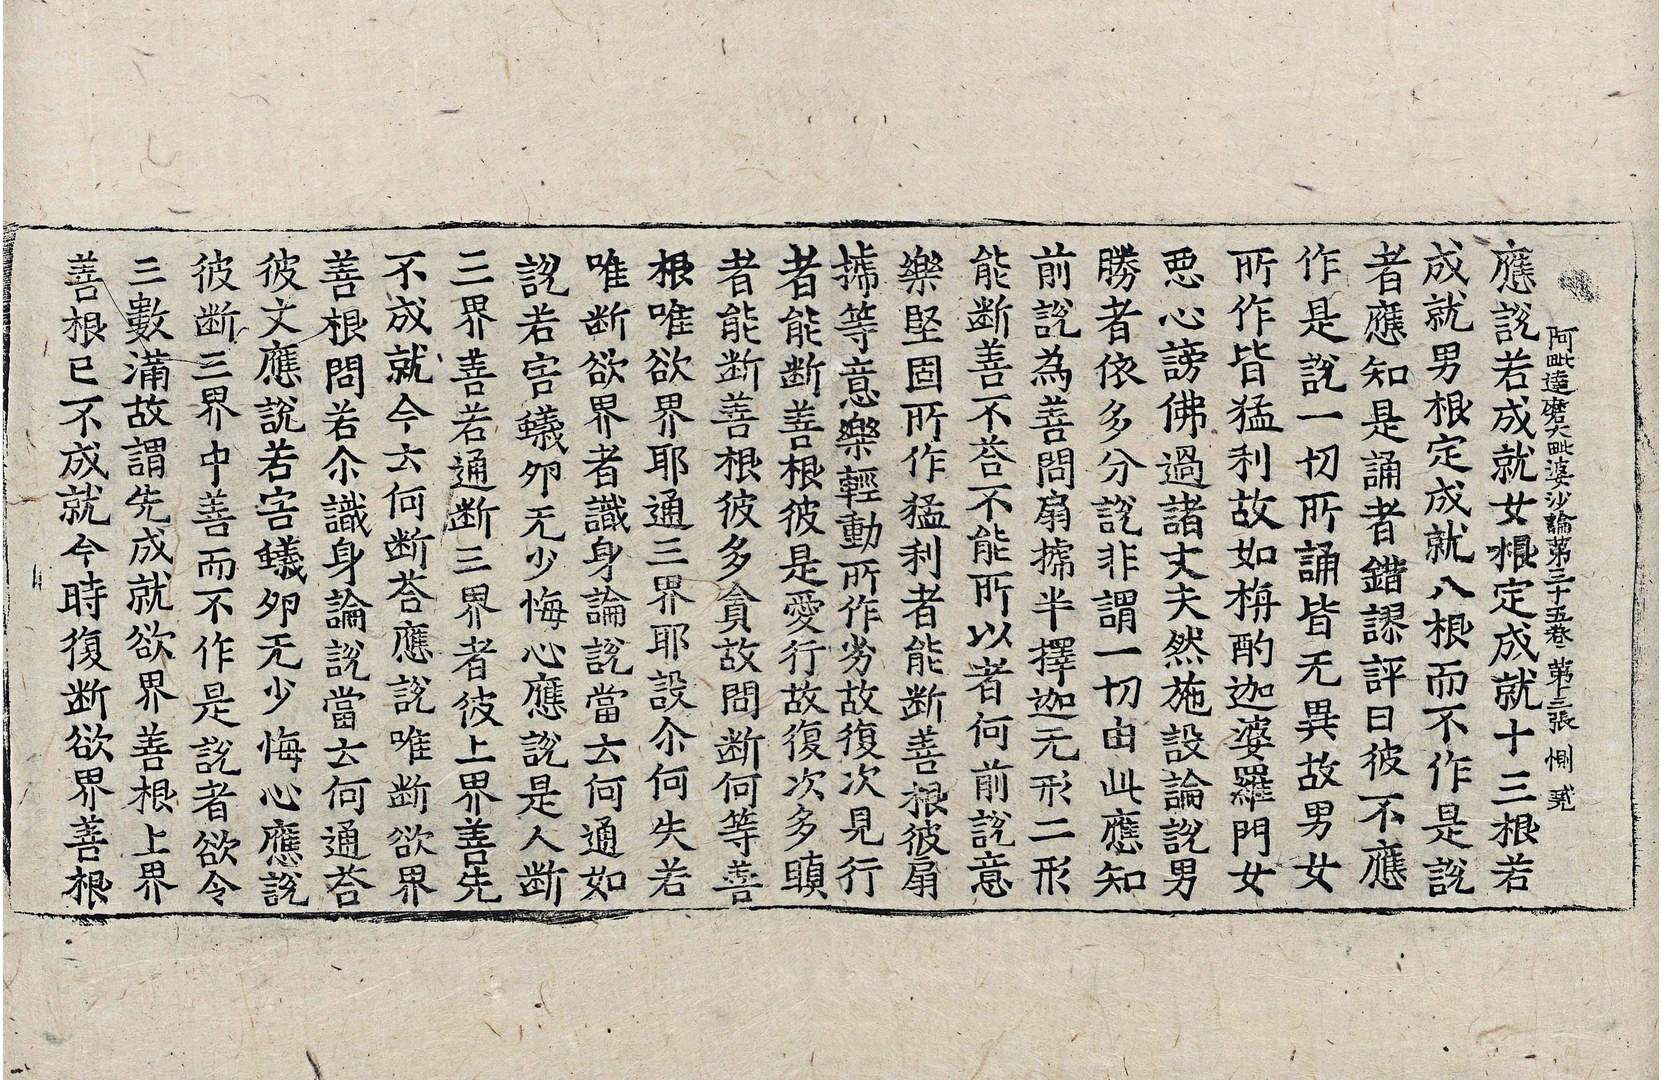 阿毗達磨大毗婆沙論第三十五卷 第三張 惻
應說若成就女根定成就十三根若
成就男根定成就八根而不作是說
者應知是誦者錯謬評曰彼不應
作是說一切所誦皆无異故男女
所作皆猛利故如栴酌迦婆羅門女
惡心謗佛過諸丈夫然施設論說男
勝者依多分說非謂一切由此應知
前說為善問扇搋半擇迦无形二形
能断善不荅不能所以者何前說意
樂堅固所作猛利者能断善根彼扇
搋等意樂輕動所作劣故復次見行
者能断善根彼是愛行故復次多瞋
者能断善根彼多貪故問断何等善
根唯欲界耶通三界耶設尒何失若
唯断欲界者識身論說當云何通如
說若害蟻夘无少悔心應說是人断
三界善若通断三界者彼上界善先
不成就今云何断荅應說唯断欲界
善根問若尒識身論說當云何通荅
彼文應說若害蟻夘无少悔心應說
彼断三界中善而不作是說者欲令
三數滿故謂先成就欲界善根上界
善根已不成就今時復断欲界善根